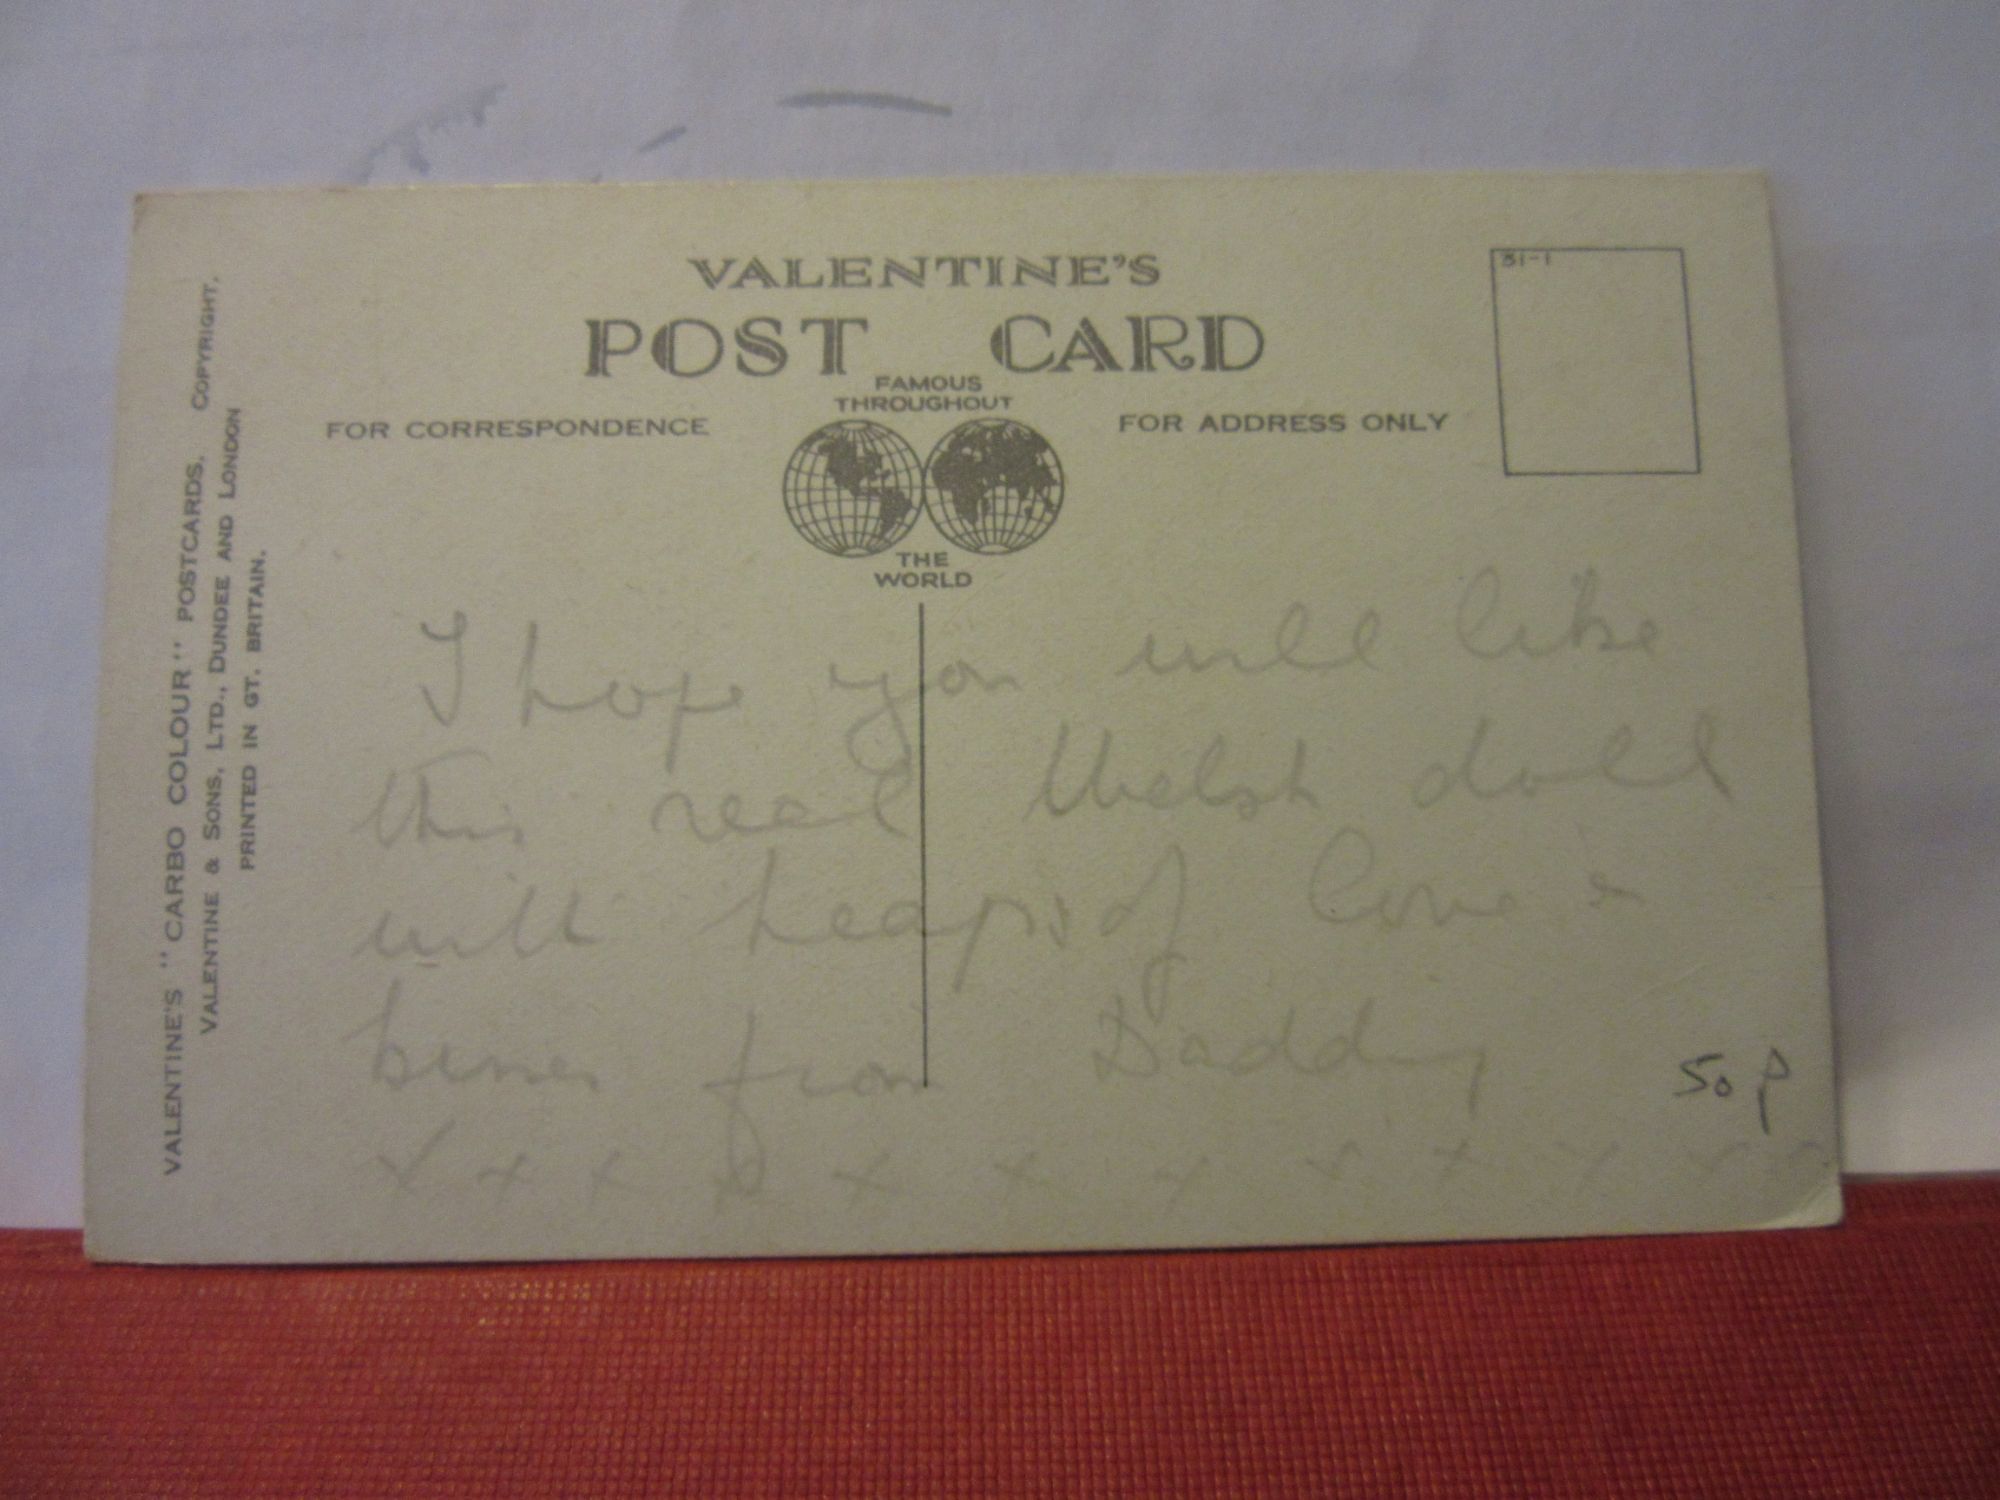 VALENTINE'S
POST CARD
FAMOUS
THROUGHOUT
THE
WORLD
FOR CORRESPONDENCE
FOR ADDRESS ONLY
31-1
VALENTINE'S "CARBO COLOUR" POSTCARDS. COPYRIGHT.
VALENTINE & SONS, LTD., DUNDEE AND LONDON
PRINTED IN GT. BRITAIN.
I hope you will like
this real Welsh doll
with heaps of love &
kisses from Daddy
x x x x x x x x x x x x
50 p